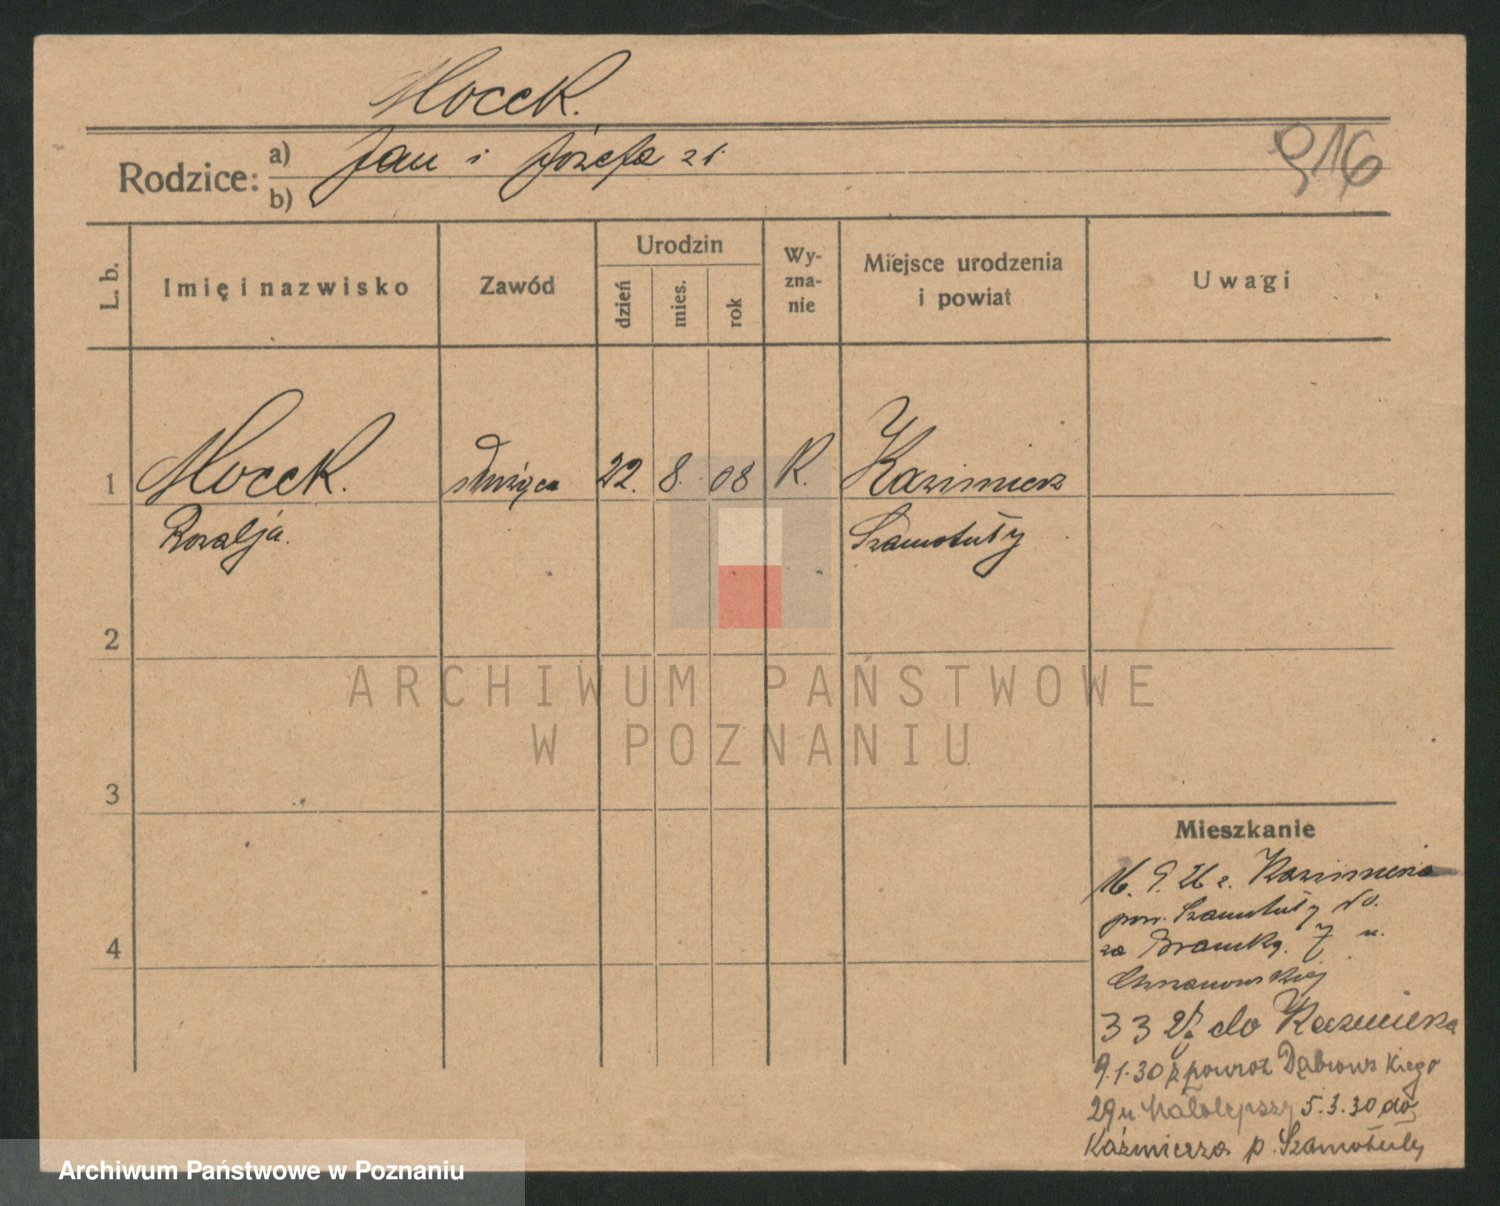 Mocek.
Rodzice: a) Jan i Józefa
b)
916
L. b. Imię i nazwisko Zawód Urodzin dzień mies. rok Wy-zna-nie Miejsce urodzenia i powiat Uwagi
1 Mocek. służąca 22. 8. 08 R. Kazimierz
Rozalja. Szamotuły
2
ARCHIWUM PAŃSTWOWE
W POZNANIU
3
Mieszkanie
16. 9. 26 z. Kazimierza
pow. Szamotuły do
za Bramką. 7 u.
Chrzanowskiej
3 3 27 do Kazmierza
9.1.30 z powroz Dąbrowskiego
29 u. Małolepszy 5.3.30 do
Kaźmierza p. Szamotuły
4
Archiwum Państwowe w Poznaniu